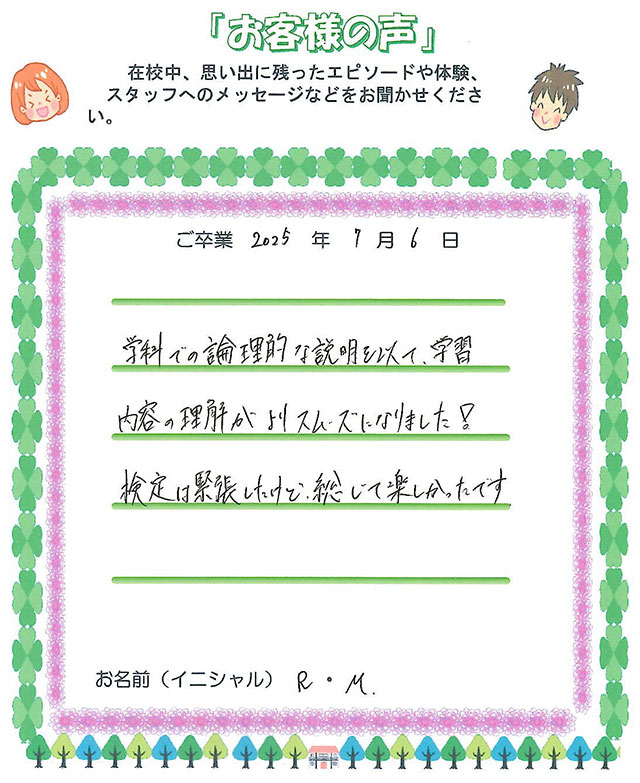 「お客様の声」
在校中、思い出に残ったエピソードや体験、
スタッフへのメッセージなどをお聞かせくださ
い。
ご卒業 2025 年 7 月 6 日
学科での論理的な説明を以て、学習
内容の理解がよりスムーズになりました!
検定は緊張したけど、総じて楽しかったです
お名前（イニシャル） R・M.